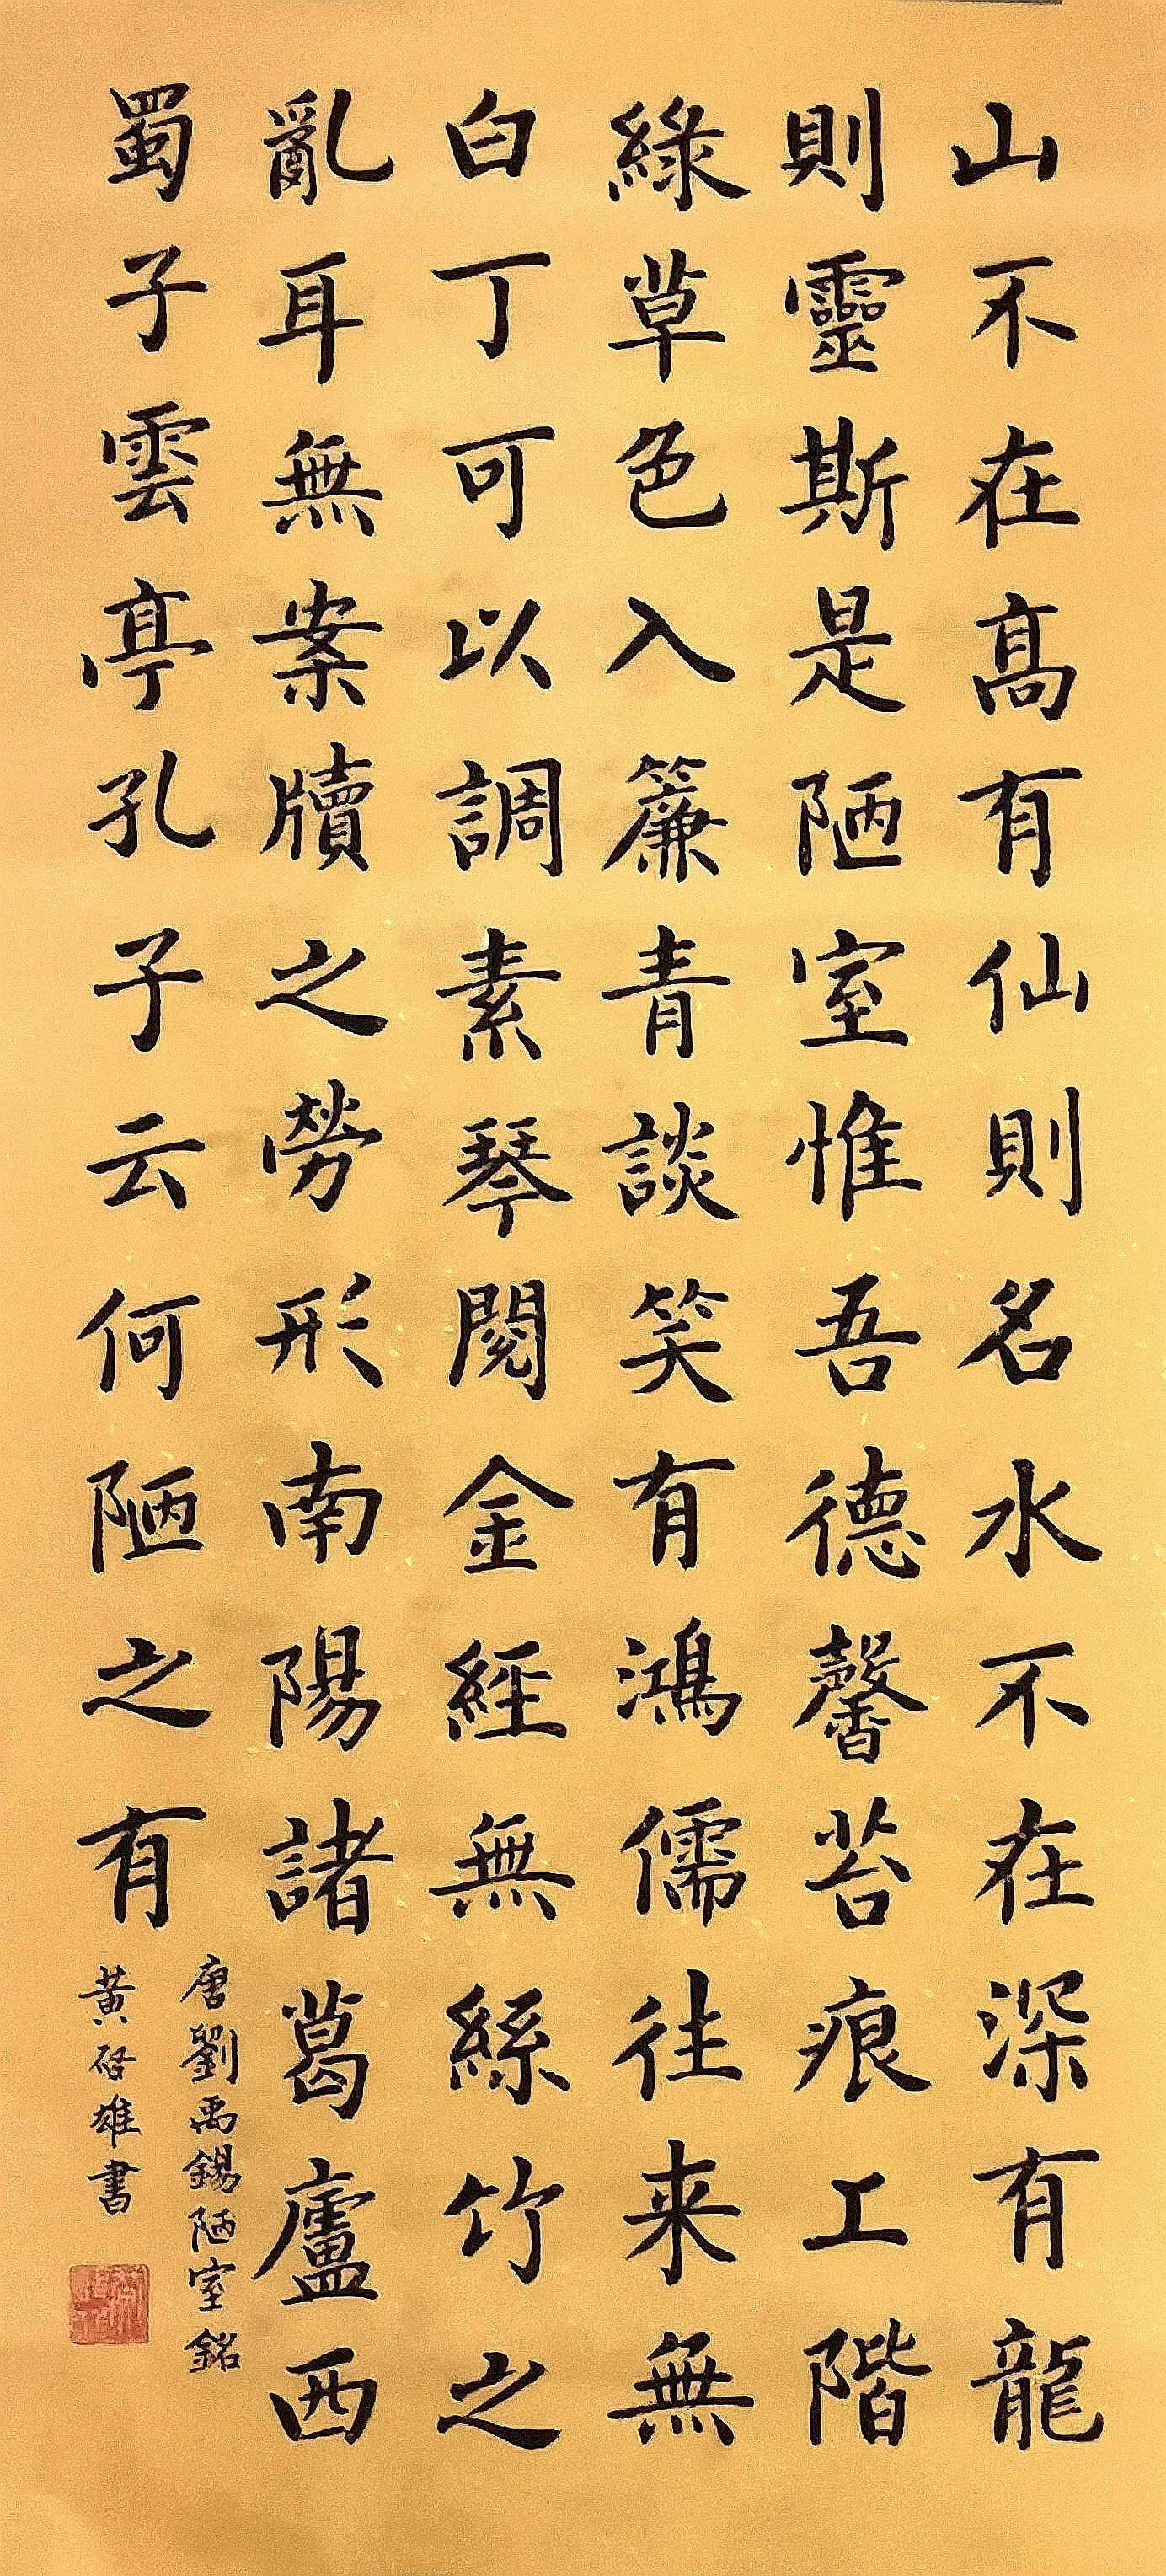 山不在高有仙則名水不在深有龍
則靈斯是陋室惟吾德馨苔痕工階
綠草色入簾青談笑有鴻儒往来無
白丁可以調素琴閱金經無絲竹之
亂耳無案牘之勞形南陽諸葛廬西
蜀子雲亭孔子云何陋之有
唐劉禹錫陋室銘
黃啓雄書